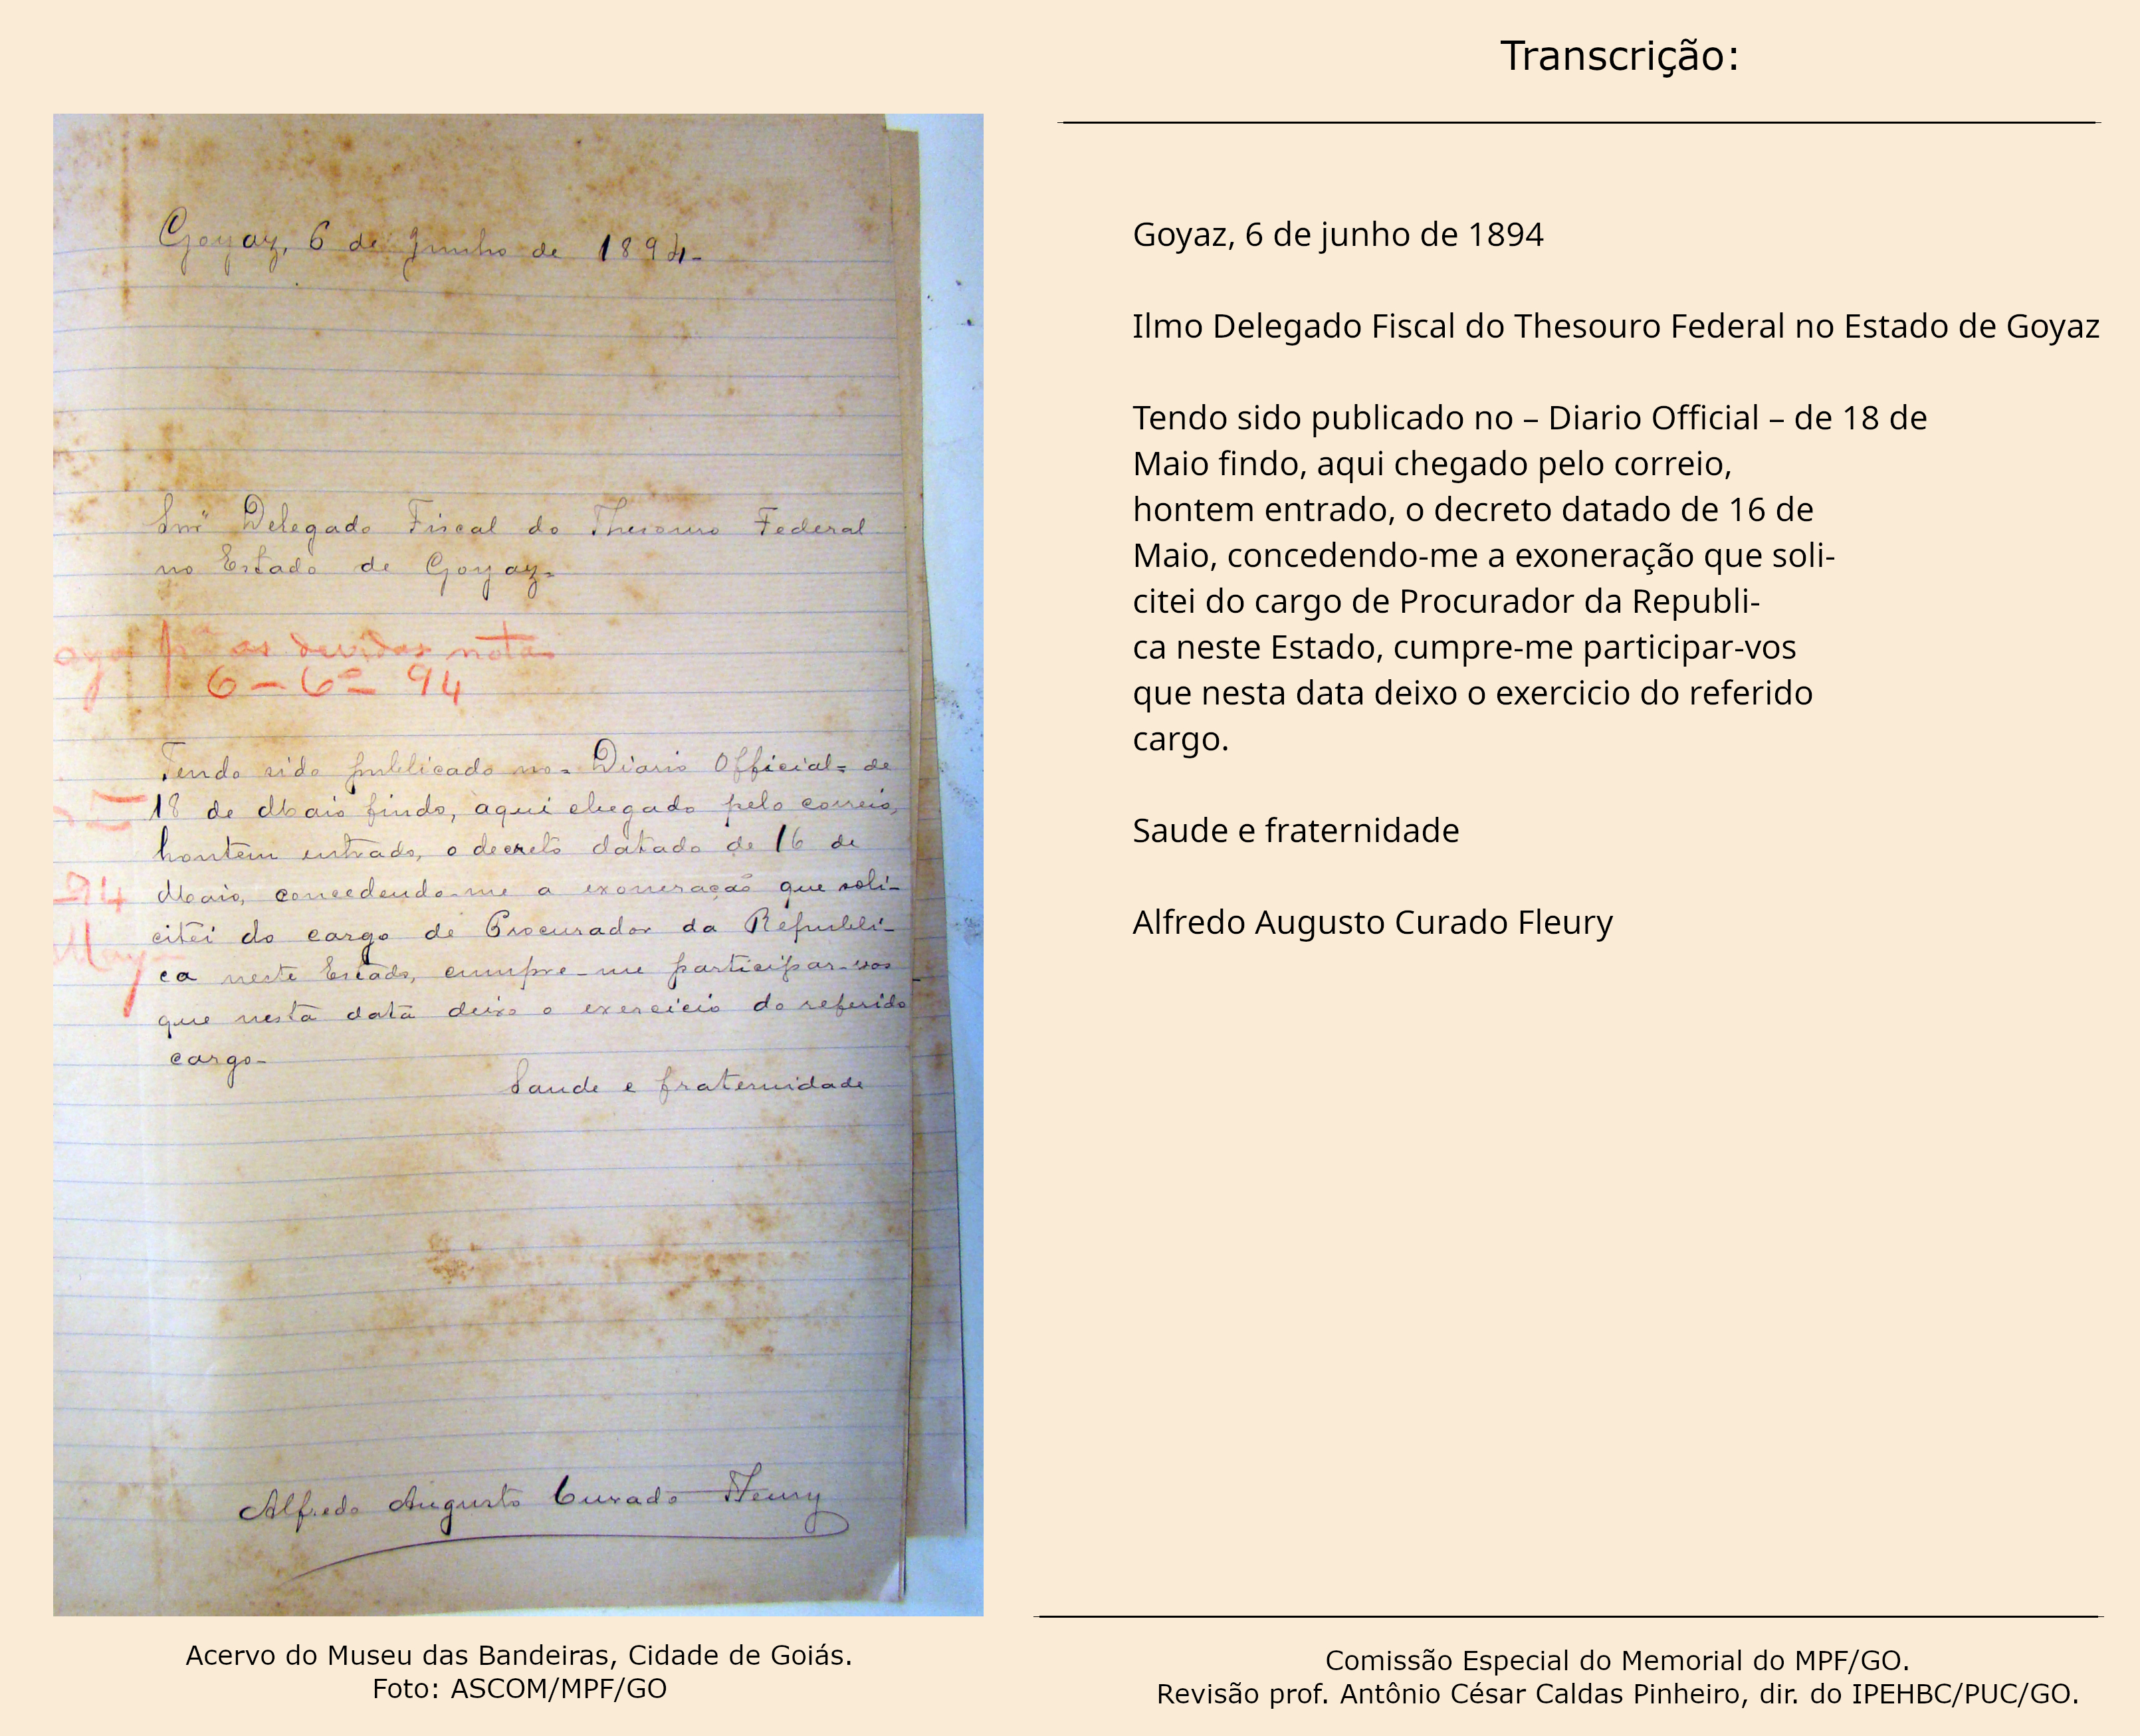 Goyaz, 6 de Junho de 1894-
Delegado Fiscal do Thesouro Federal
no Estado de Goyaz-
as devidas notas
6-6º- 94
Tendo sido publicado no - Diario Official - de
18 de Maio findo, aqui chegado pelo correio,
hontem entrado, o decreto datado de 16 de
94 Maio, concedendo-me a exoneração que soli-
citei do cargo de Procurador da Republi-
ca neste Estado, cumpre-me participar-vos
que nesta data deixo o exercicio do referido
cargo-
Saude e fraternidade
Alfredo Augusto Curado Fleury
Acervo do Museu das Bandeiras, Cidade de Goiás.
Foto: ASCOM/MPF/GO
Transcrição:
Goyaz, 6 de junho de 1894
Ilmo Delegado Fiscal do Thesouro Federal no Estado de Goyaz
Tendo sido publicado no – Diario Official – de 18 de
Maio findo, aqui chegado pelo correio,
hontem entrado, o decreto datado de 16 de
Maio, concedendo-me a exoneração que soli-
citei do cargo de Procurador da Republi-
ca neste Estado, cumpre-me participar-vos
que nesta data deixo o exercicio do referido
cargo.
Saude e fraternidade
Alfredo Augusto Curado Fleury
Comissão Especial do Memorial do MPF/GO.
Revisão prof. Antônio César Caldas Pinheiro, dir. do IPEHBC/PUC/GO.